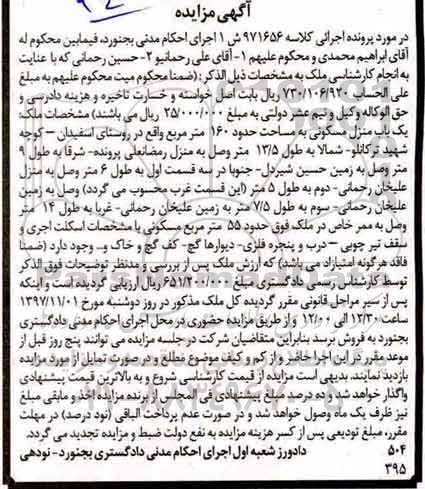 آگهی مزایده
در مورد پرونده اجرائی کلاسه ۹۷۱۶۵۶ ش ۱ اجرای احکام مدنی بجنورد، فیمابین محکوم له
آقای ابراهیم محمدی و محکوم علیهم ۱- آقای علی رحمانیو ۲- حسین رحمانی که با عنایت
به انجام کارشناسی ملک به مشخصات ذیل الذکر: (ضمنا محکوم میت محکوم علیهم به مبلغ
علی الحساب ۷۳۰/۱۰۶/۹۲۰ ریال بابت اصل خواسته و خسارت تاخیره و هزینه دادرسی و
حق الوکاله وکیل و نیم عشر دولتی به مبلغ ۲۵/۰۰۰/۰۰۰ ریال می باشند) مشخصات ملک:
یک باب منزل مسکونی به مساحت حدود ۱۶۰ متر مربع واقع در روستای اسفیدان – کوچه
شهید ترکانلو- شمالا به طول ۱۳/۵ متر وصل به منزل رمضانعلی پرونده- شرقا به طول ۹
متر وصل به زمین حسین شیردل- جنوبا در سه قسمت اول به طول ۶ متر وصل به منزل
علیخان رحمانی- دوم به طول ۵ متر (این قسمت غرب محسوب می گردد) وصل به زمین
علیخان رحمانی- سوم به طول ۷/۵ متر به زمین علیخان رحمانی- غربا به طول ۱۴ متر
وصل به ممر خاص در ملک فوق حدود ۵۵ متر مربع مسکونی با مشخصات اسکلت اجری و
سقف تیر چوبی – درب و پنجره فلزی- دیوارها گچ- کف گچ و خاک و.. وجود دارد (ضمنا
فاقد هرگونه امتیازاد می باشد) که ارزش ملک پس از بررسی و مدنظر توضیحات فوق الذکر
توسط کارشناس رسمی دادگستری مبلغ ۶۵۱/۲۰۰/۰۰۰ ریال ارزیابی گردیده است و اینکه
پس از سیر مراحل قانونی مقرر گردیده کل ملک مذکور در روز دوشنبه مورخ ۱۳۹۷/۱۱/۰۱
ساعت ۱۲/۳۰ الی ۱۲/۰۰ و از طریق مزایده حضوری در محل اجرای احکام مدنی دادگستری
بجنورد به فروش برسد بنابراین متقاضیان شرکت در جلسه مزایده می توانند پنج روز قبل از
موعد مقرر در این اجرا حاضر و از کم و کیف موضوع مطلع و در صورت تمایل از مورد مزایده
بازدید نمایند. بدیهی است مزایده از قیمت کارشناسی شروع و به بالاترین قیمت پیشنهادی
واگذار خواهد شد و ده درصد مبلغ پیشنهادی فی المجلس از برنده مزایده اخذ و مابقی مبلغ
نیز ظرف یک ماه وصول خواهد شد و در صورت عدم پرداخت الباقی (نود درصد) در مهلت
مقرر، مبلغ تودیعی پس از کسر هزینه مزایده به نفع دولت ضبط و مزایده تجدید می گردد.
۵۰۴ دادورز شعبه اول اجرای احکام مدنی دادگستری بجنورد- نودهی
۳۹۵